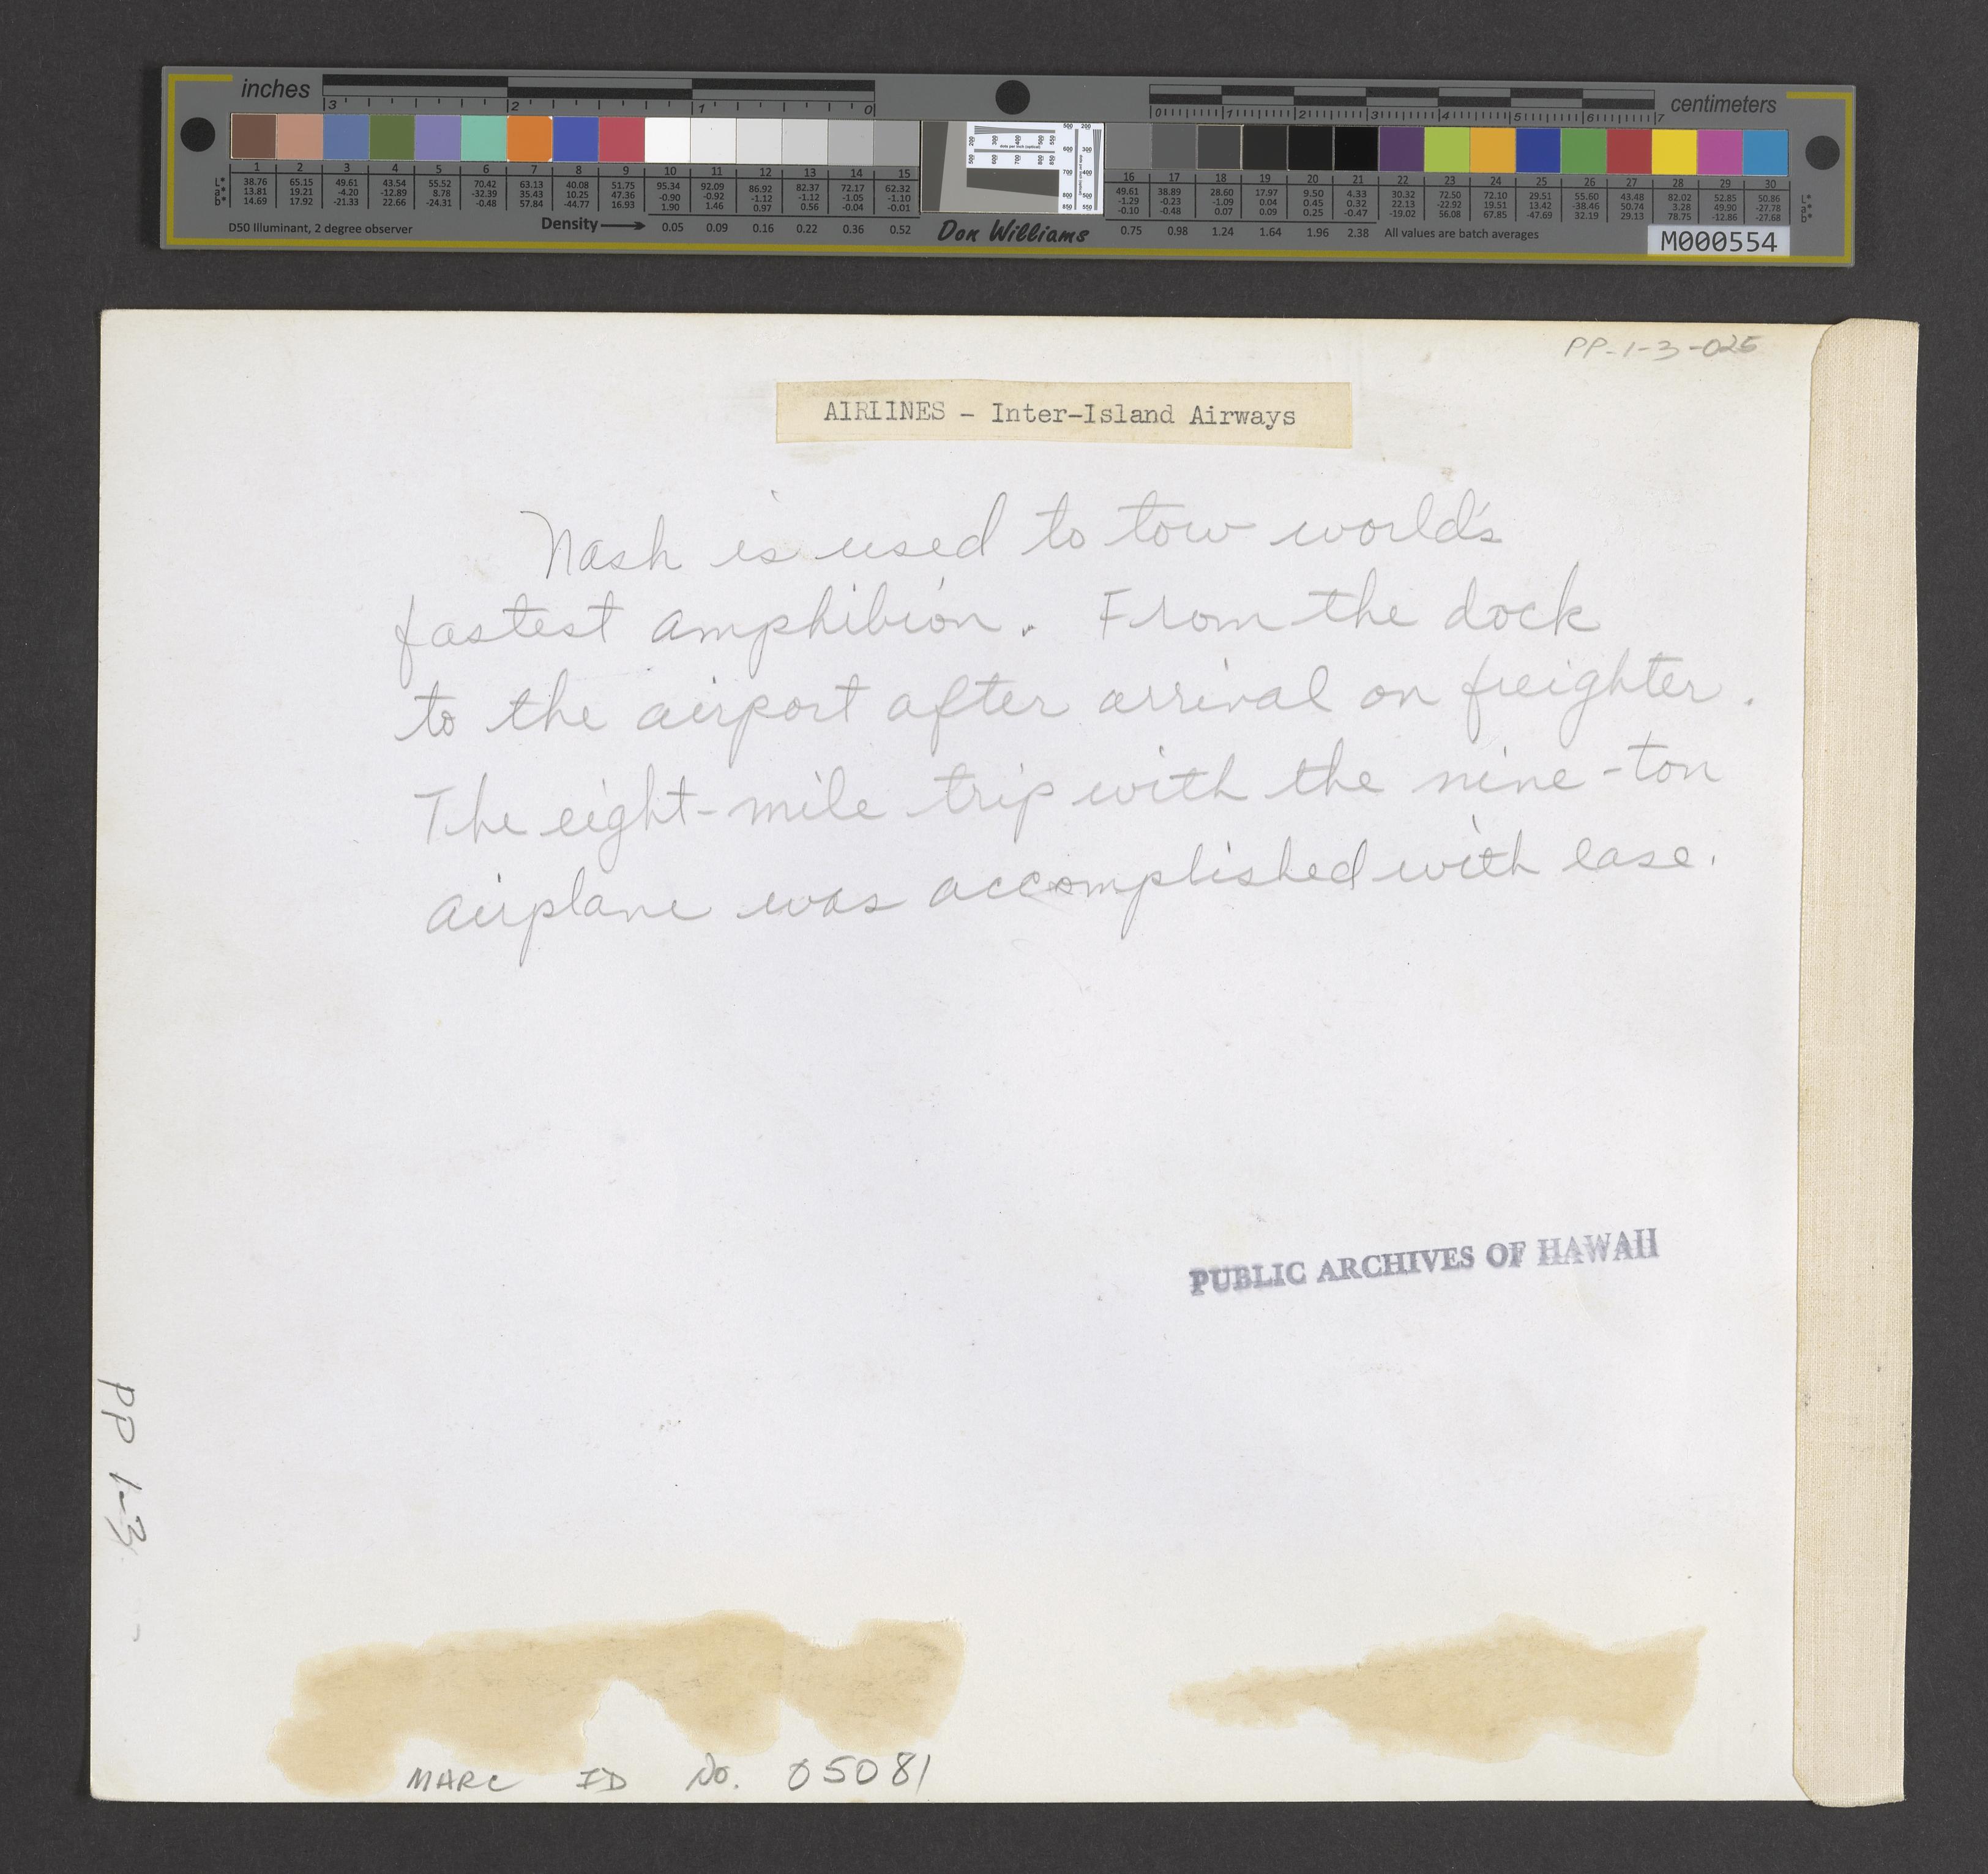 inches
3 2 1 0
0 1 2 3 4 5 6 7
centimeters
1 2 3 4 5 6 7 8 9 10 11 12 13 14 15
L* 38.76 65.15 49.61 43.54 55.52 70.42 63.13 40.08 51.75 95.34 92.09 86.92 82.37 72.17 62.32
a* 13.81 19.21 -4.20 -12.89 8.78 -32.39 35.43 10.25 47.36 -0.90 -0.92 -1.12 -1.12 -1.05 -1.10
b* 14.69 17.92 -21.33 22.66 -24.31 -0.48 57.84 -44.77 16.93 1.90 1.46 0.97 0.56 -0.04 -0.01
D50 Illuminant, 2 degree observer
Density 0.05 0.09 0.16 0.22 0.36 0.52
Don Williams
16 17 18 19 20 21 22 23 24 25 26 27 28 29 30
49.61 38.89 28.60 17.97 9.50 4.33 30.32 72.50 72.10 29.51 55.60 43.48 82.02 52.85 50.86 L*
-1.29 -0.23 -1.09 0.04 0.45 0.32 22.13 -22.92 19.51 13.42 -38.46 50.74 3.28 49.90 -27.78 a*
-0.10 -0.48 0.07 0.09 0.25 -0.47 -19.02 56.08 67.85 -47.69 32.19 29.13 78.75 -12.86 -27.68 b*
0.75 0.98 1.24 1.64 1.96 2.38 All values are batch averages
M000554
PP-1-3-025
AIRLINES - Inter-Island Airways
Nash is used to tow world's
fastest amphibion. From the dock
to the airport after arrival on freighter.
The eight-mile trip with the nine-ton
airplane was accomplished with ease.
PUBLIC ARCHIVES OF HAWAII
PP 1-3
MARC ID No. 05081